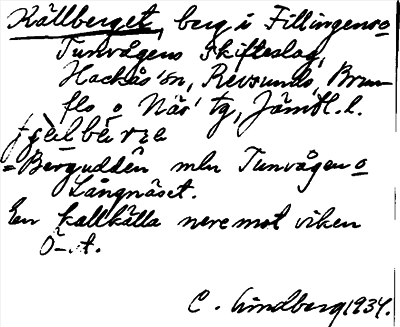 Källberget, berg i Fillingens o
Tunvågens Skifteslag,
Hackås sn, Revsunds, Brun-
flo o Näs tg, Jämtl. l.
= Bergudden mln Tunvågen o
Långnäset.
En kallkälla nere mot viken
Ö-t.
C. Lindberg 1934.